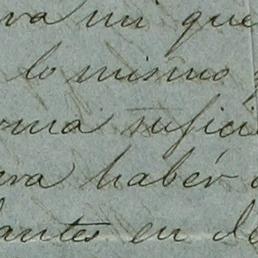 va mi que
lo mismo
orma sufici
era habér
antes en de